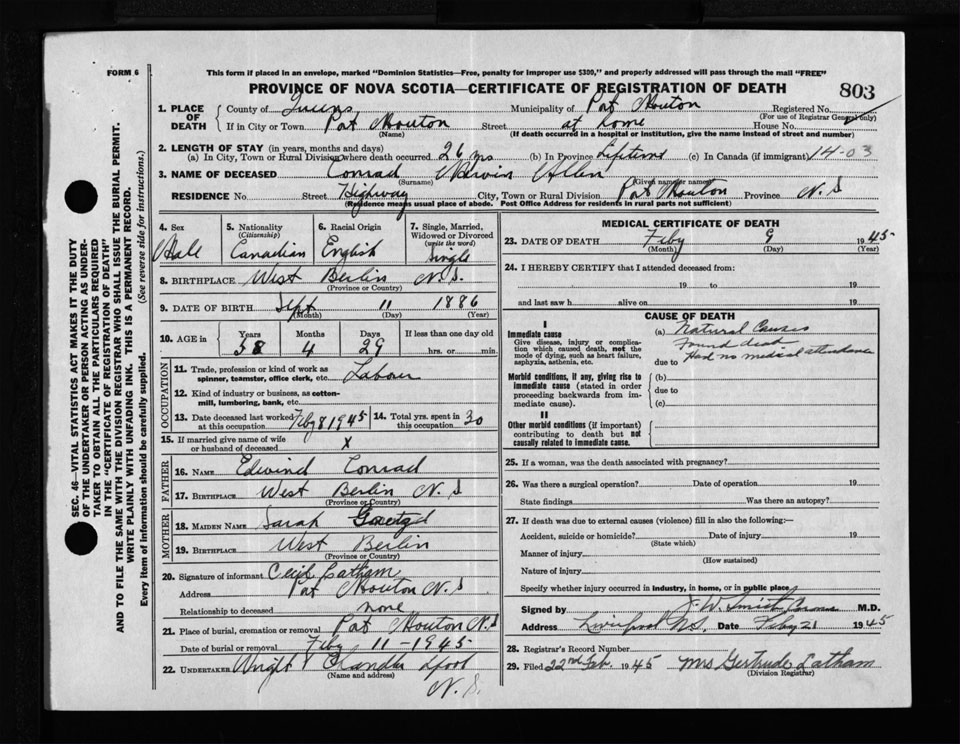 FORM 6
This form if placed in an envelope, marked "Dominion Statistics—Free, penalty for improper use $300," and properly addressed will pass through the mail "FREE"
PROVINCE OF NOVA SCOTIA—CERTIFICATE OF REGISTRATION OF DEATH 803
SEC. 46—VITAL STATISTICS ACT MAKES IT THE DUTY
OF THE UNDERTAKER OR PERSON ACTING AS UNDER-
TAKER TO OBTAIN ALL THE PARTICULARS REQUIRED
IN THE "CERTIFICATE OF REGISTRATION OF DEATH"
AND TO FILE THE SAME WITH THE DIVISION REGISTRAR WHO SHALL ISSUE THE BURIAL PERMIT.
WRITE PLAINLY WITH UNFADING INK. THIS IS A PERMANENT RECORD.
Every item of information should be carefully supplied. (See reverse side for instructions.)
1. PLACE OF DEATH County of Queens Municipality of Port Mouton Registered No.
(For use of Registrar General only)
If in City or Town Port Mouton Street at home House No.
(Name) (If death occurred in a hospital or institution, give the name instead of street and number)
2. LENGTH OF STAY (in years, months and days)
(a) In City, Town or Rural Division where death occurred 26 yrs (b) In Province Lifetime (c) In Canada (if immigrant) 14-03
3. NAME OF DECEASED Conrad Mervin Allen
(Surname) (Given name or names)
RESIDENCE No. Street Highway City, Town or Rural Division Port Mouton Province N.S
(Residence means usual place of abode. Post Office Address for residents in rural parts not sufficient)
4. Sex Male
5. Nationality (Citizenship) Canadian
6. Racial Origin English
7. Single, Married, Widowed or Divorced (write the word) Single
8. BIRTHPLACE West Berlin N.S.
(Province or Country)
9. DATE OF BIRTH Sept 11 1886
(Month) (Day) (Year)
10. AGE in Years 58 Months 4 Days 29 If less than one day old hrs. or min.
OCCUPATION
11. Trade, profession or kind of work as spinner, teamster, office clerk, etc. Labour
12. Kind of industry or business, as cotton-mill, lumbering, bank, etc.
13. Date deceased last worked at this occupation Feby 8 1945
14. Total yrs. spent in this occupation 30
15. If married give name of wife or husband of deceased x
FATHER
16. NAME Edwind Conrad
17. BIRTHPLACE West Berlin N.S
(Province or Country)
MOTHER
18. MAIDEN NAME Sarah
19. BIRTHPLACE West Berlin
(Province or Country)
20. Signature of informant Cecil Latham
Address Port Mouton N.S
Relationship to deceased none
21. Place of burial, cremation or removal Port Mouton N.S
Date of burial or removal Feby 11-1945
22. UNDERTAKER Wright & Chandler Lpool
(Name and address)
N.S.
MEDICAL CERTIFICATE OF DEATH
23. DATE OF DEATH Feby 9 1945
(Month) (Day) (Year)
24. I HEREBY CERTIFY that I attended deceased from:
19 to 19
and last saw h alive on 19
CAUSE OF DEATH
I
Immediate cause
Give disease, injury or complication which caused death, not the mode of dying, such as heart failure, asphyxia, asthenia, etc.
(a) Natural Causes
Found dead
due to Had no medical attendance
Morbid conditions, if any, giving rise to immediate cause (stated in order proceeding backwards from immediate cause).
(b)
due to
(c)
II
Other morbid conditions (if important) contributing to death but not causally related to immediate cause.
25. If a woman, was the death associated with pregnancy?
26. Was there a surgical operation? Date of operation 19
State findings Was there an autopsy?
27. If death was due to external causes (violence) fill in also the following:—
Accident, suicide or homicide? Date of injury 19
(State which)
Manner of injury
(How sustained)
Nature of injury
Specify whether injury occurred in industry, in home, or in public place
Signed by J. W. Smith Coroner M.D.
Address Liverpool N.S. Date Feby 21 1945
28. Registrar's Record Number
29. Filed 22nd Feb. 1945 Mrs Gertrude Latham
(Division Registrar)